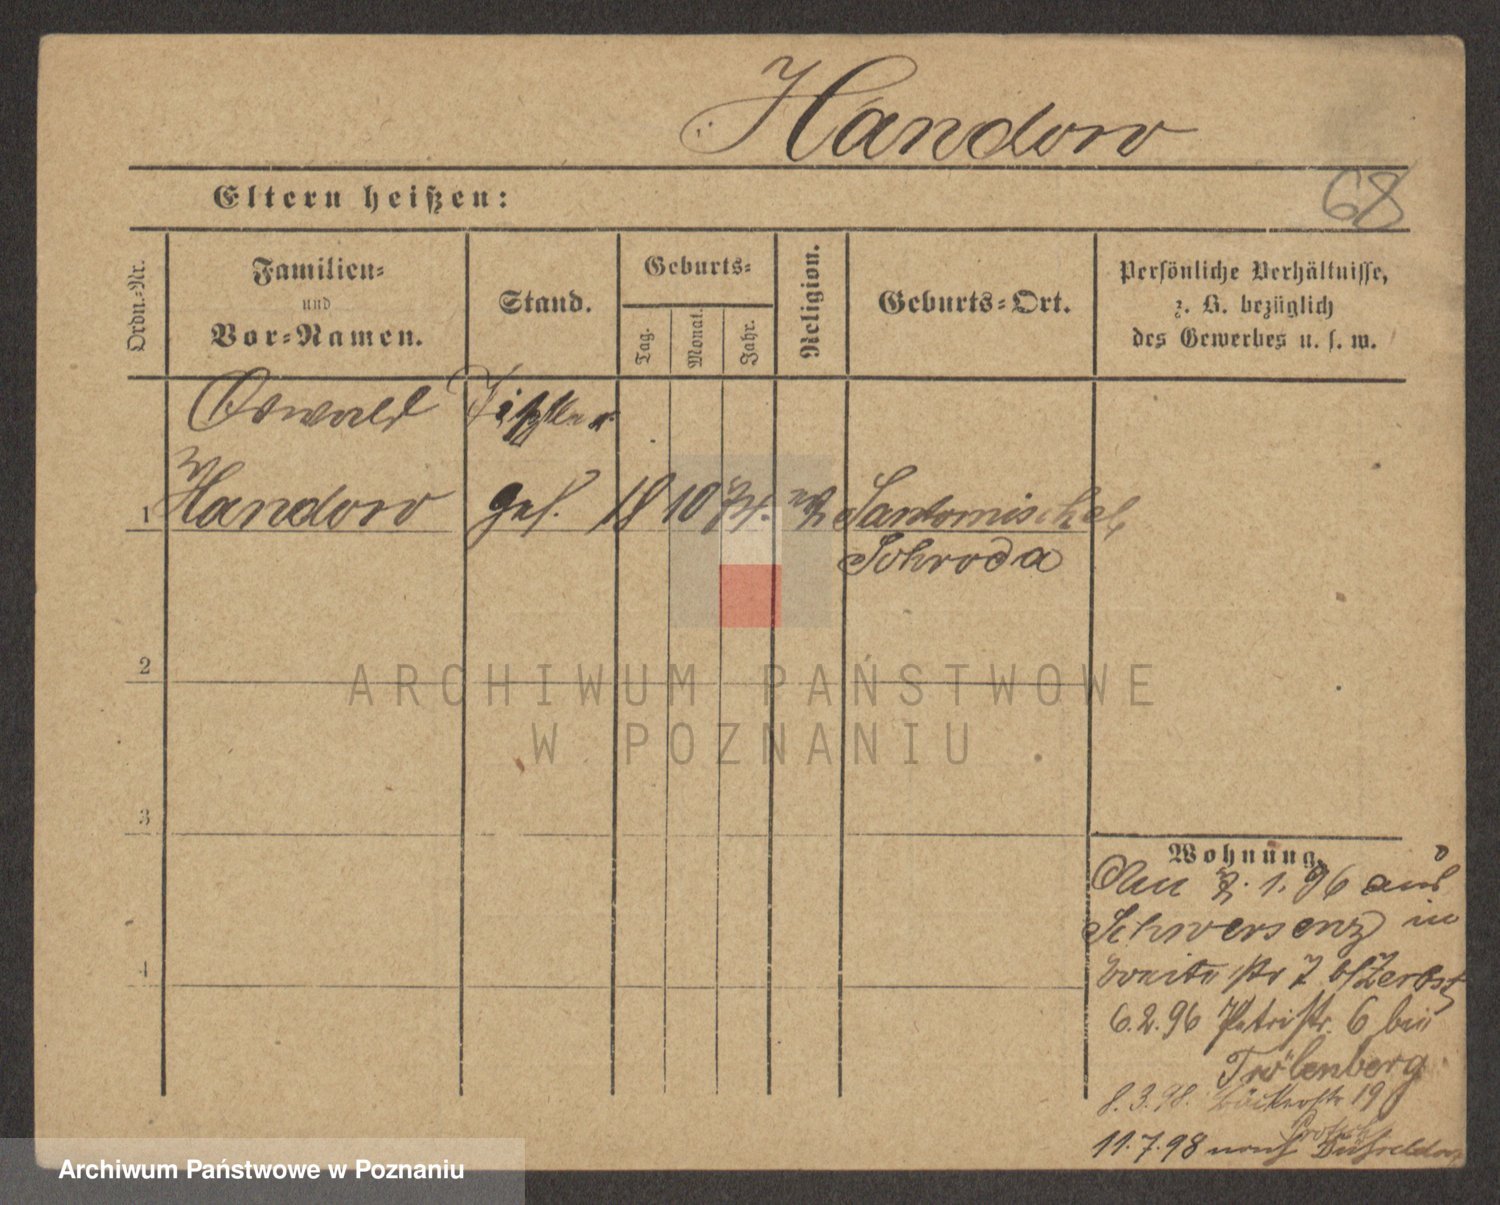 Handow
68
Eltern heißen:
Ordn.-Nr.
Familien-
und
Vor-Namen.
Stand.
Geburts-
Tag.
Monat.
Jahr.
Religion.
Geburts-Ort.
Persönliche Verhältnisse,
z. B. bezüglich
des Gewerbes u. s. w.
Oswald Tischler
1 Handow ges. 18 10 74. Santomischel
Schroda
2
3
4
ARCHIWUM PAŃSTWOWE
W POZNANIU
Wohnung.
7. 1. 96 aus
Schwersenz in
Breite str 7 b/Zerbst
6.2.96 Petristr. 6 bei
8.3.98. Bäckerstr 19
11.7.98 nach Düsseldorf
Archiwum Państwowe w Poznaniu